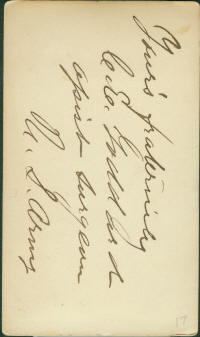 Yours fraternity
C.E. Goddard
Assist Surgeon
U. S. Army
17